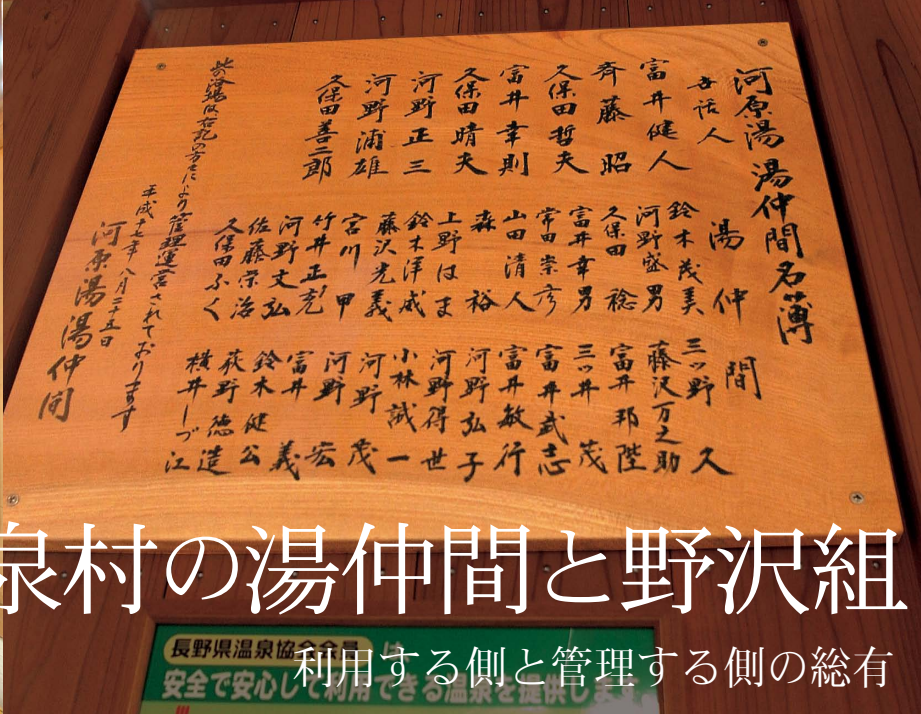 河原湯湯仲間名簿
世話人
富井健人
斉藤 昭
久保田哲夫
富井幸則
久保田晴夫
河野正三
河野浦雄
久保田善二郎
湯仲間
鈴木茂美
河野盛男
久保田 稔
富井幸男
常田崇彦
山田清人
森 裕
上野はま
鈴木洋
藤沢光義
宮川 甲
竹井正
河野文弘
佐藤栄治
久保田ふく
三ッ野 久
藤沢万之助
富井邦陛
三ッ井 茂
富井武志
富井敏行
河野弘子
河野得世
小林誠一
河野 茂
河野 宏
富井 義
鈴木健公
萩野徳造
横井しづ江
此の浴場は右記の方々により管理運営されております
平成十七年八月二十五日
河原湯湯仲間
泉村の湯仲間と野沢組
利用する側と管理する側の総有
長野県温泉協会会員 は、
安全で安心して利用できる温泉を提供します